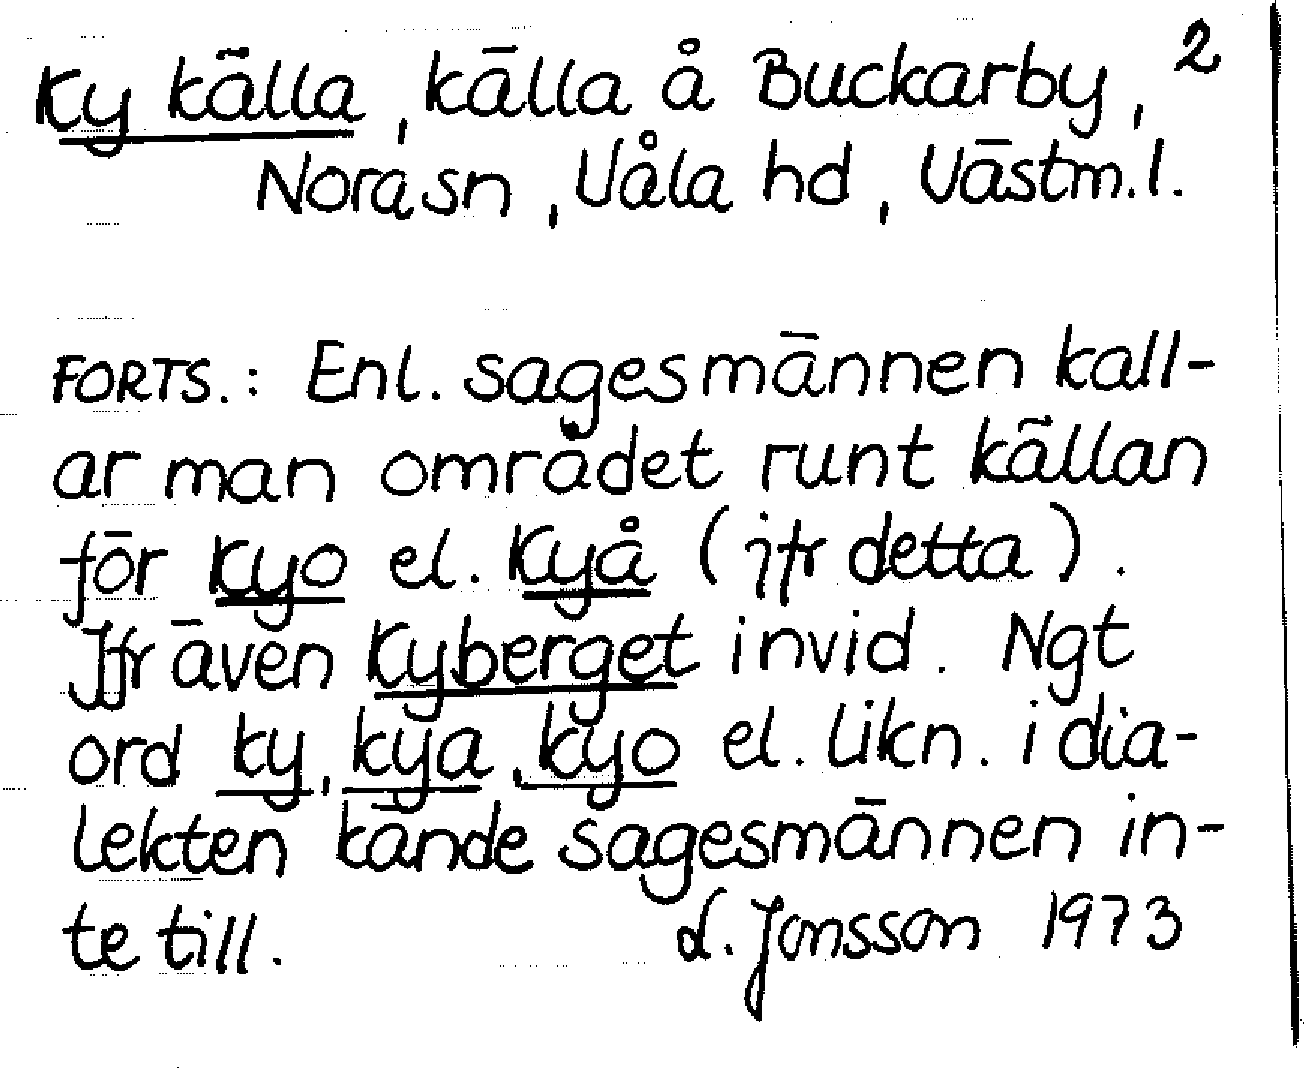 Ky källa, källa å Buckarby, 2
Nora sn, Våla hd, Västm.l.
FORTS.: Enl. sagesmännen kall-
ar man området runt källan
för Kyo el. Kyå (jfr detta).
Jfr även Kyberget invid. Ngt
ord ky, kya, kyo el. likn. i dia-
lekten kände sagesmännen in-
te till. L. Jonsson 1973